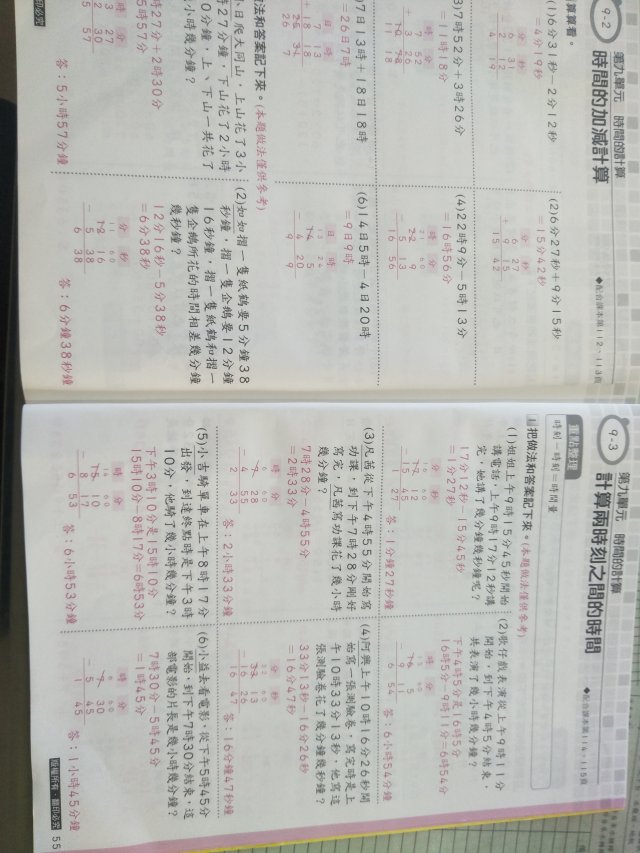 9-2
第九單元 時間的計算
時間的加減計算
◆配合課本第112、113頁
算算看。
(1)6分31秒－2分12秒
＝4分19秒
分 秒
6 31
－ 2 12
4 19
(2)6分27秒＋9分15秒
＝15分42秒
分 秒
6 27
＋ 9 15
15 42
3)7時52分＋3時26分
＝11時18分
時 分
7 52
＋ 3 26
10 78
11 18
(4)22時9分－5時13分
＝16時56分
時 分
21 60
22 9
－ 5 13
16 56
)7日13時＋18日18時
＝26日7時
日 時
7 13
＋ 18 18
25 31
26 7
(6)14日5時－4日20時
＝9日9時
日 時
13 24
14 5
－ 4 20
9 9
法和答案記下來。(本題做法僅供參考)
小日爬大同山，上山花了3小
時27分鐘，下山花了2小時
0分鐘，上、下山一共花了
小時幾分鐘？
時27分＋2時30分
5時57分
時 分
3 27
2 30
5 57
答：5小時57分鐘
(2)如如摺一隻紙鶴要5分鐘38
秒鐘，摺一隻企鵝要12分鐘
16秒鐘，摺一隻紙鶴和摺一
隻企鵝所花的時間相差幾分鐘
幾秒鐘？
12分16秒－5分38秒
＝6分38秒
分 秒
11 60
12 16
－ 5 38
6 38
答：6分鐘38秒鐘
印必究
9-3
第九單元 時間的計算
計算兩時刻之間的時間
◆配合課本第114、115頁
重點整理
時刻－時刻＝時間量
把做法和答案記下來。(本題做法僅供參考)
(1)姐姐上午9時15分45秒開始
講電話，上午9時17分12秒講
完，她講了幾分鐘幾秒鐘呢？
17分12秒－15分45秒
＝1分27秒
分 秒
16 60
17 12
－ 15 45
1 27
答：1分鐘27秒鐘
(2)歌仔戲表演從上午9時11分
開始，到下午4時5分結束，
共表演了幾小時幾分鐘？
下午4時5分是16時5分
16時5分－9時11分＝6時54分
時 分
15 60
16 5
－ 9 11
6 54
答：6小時54分鐘
(3)凡茜從下午4時55分開始寫
功課，到下午7時28分剛好
寫完，凡茜寫功課花了幾小時
幾分鐘？
7時28分－4時55分
＝2時33分
時 分
6 60
7 28
－ 4 55
2 33
答：2小時33分鐘
(4)阿興上午10時16分26秒開
始寫一張測驗卷，寫完時是上
午10時33分13秒，他寫這
張測驗卷花了幾分鐘幾秒鐘？
33分13秒－16分26秒
＝16分47秒
分 秒
32 60
33 13
－ 16 26
16 47
答：16分鐘47秒鐘
(5)小吉騎單車在上午8時17分
出發，到達終點時是下午3時
10分，他騎了幾小時幾分鐘？
下午3時10分是15時10分
15時10分－8時17分＝6時53分
時 分
14 60
15 10
－ 8 17
6 53
答：6小時53分鐘
(6)小益去看電影，從下午5時45分
開始，到下午7時30分結束，這
部電影的片長是幾小時幾分鐘？
7時30分－5時45分
＝1時45分
時 分
6 60
7 30
－ 5 45
1 45
答：1小時45分鐘
版權所有·翻印必究 55